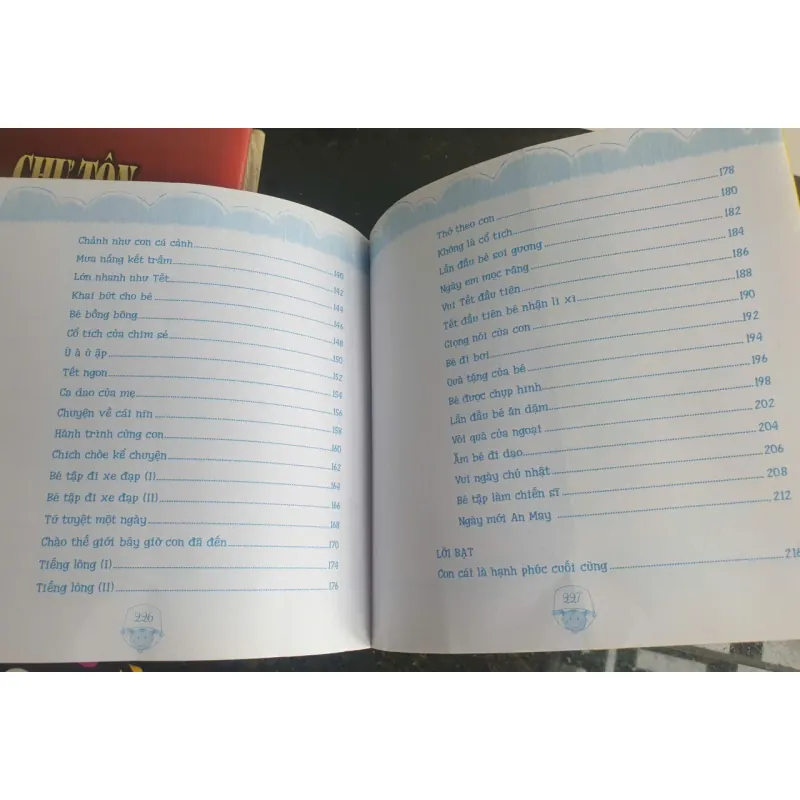 CHƯ TÔN
Chảnh như con cá cảnh 140
Mưa nắng kết trầm 142
Lớn nhanh như Tết 144
Khai bút cho bé 146
Bé bồng bông 148
Cổ tích của chim sẻ 150
Ù à ù ập 152
Tết ngon 154
Ca dao của mẹ 156
Chuyện về cái nín 158
Hành trình cùng con 160
Chích chòe kể chuyện 162
Bé tập đi xe đạp (I) 164
Bé tập đi xe đạp (II) 166
Tứ tuyệt một ngày 168
Chào thế giới bây giờ con đã đến 170
Tiếng lòng (I) 174
Tiếng lòng (II) 176
226
Thơ theo con 178
Không là cổ tích 180
Lần đầu bé soi gương 182
Ngày em mọc răng 184
Vui Tết đầu tiên 186
Tết đầu tiên bé nhận lì xì 188
Giọng nói của con 190
Bé đi bơi 192
Quà tặng của bé 194
Bé được chụp hình 196
Lần đầu bé ăn dặm 198
Với quà của ngoại 202
Ẵm bé đi dạo 204
Vui ngày chủ nhật 206
Bé tập làm chiến sĩ 208
Ngày mới An May 212
LỜI BẠT
Con cái là hạnh phúc cuối cùng 216
227